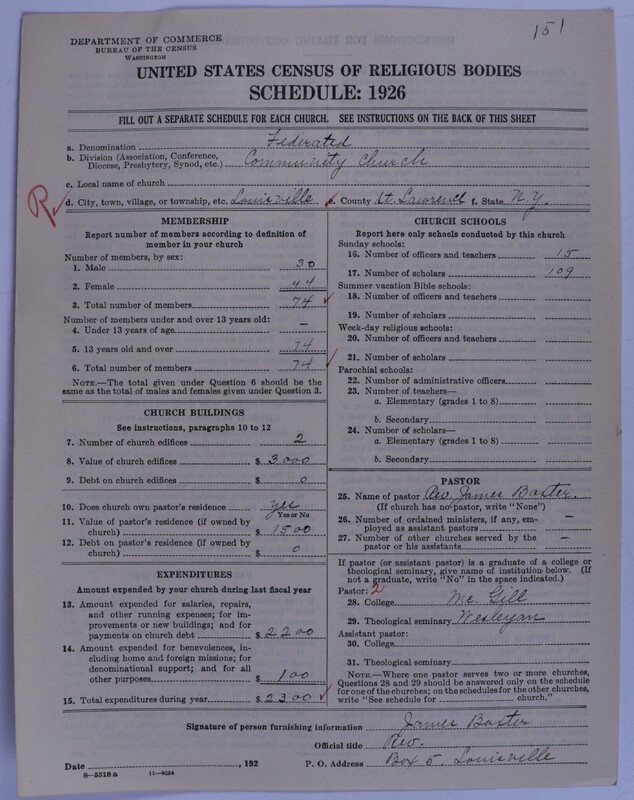 151
DEPARTMENT OF COMMERCE
BUREAU OF THE CENSUS
WASHINGTON
UNITED STATES CENSUS OF RELIGIOUS BODIES
SCHEDULE: 1926
FILL OUT A SEPARATE SCHEDULE FOR EACH CHURCH. SEE INSTRUCTIONS ON THE BACK OF THIS SHEET
a. Denomination Federated
b. Division (Association, Conference, Diocese, Presbytery, Synod, etc.) Community Church
c. Local name of church
R
d. City, town, village, or township, etc. Louisville e. County St. Lawrence f. State N.Y.
MEMBERSHIP
Report number of members according to definition of
member in your church
Number of members, by sex:
1. Male 30
2. Female 44
3. Total number of members 74
Number of members under and over 13 years old:
4. Under 13 years of age —
5. 13 years old and over 74
6. Total number of members 74
NOTE.—The total given under Question 6 should be
same as the total of males and females given under Question 3.
CHURCH BUILDINGS
See instructions, paragraphs 10 to 12
7. Number of church edifices 2
8. Value of church edifices $ 3000
9. Debt on church edifices $ 0
10. Does church own pastor's residence? yes
Yes or No
11. Value of pastor's residence (if owned by
church) $ 1500
12. Debt on pastor's residence (if owned by
church) $ 0
EXPENDITURES
Amount expended by your church during last fiscal year
13. Amount expended for salaries, repairs,
and other running expenses; for im-
provements or new buildings; and for
payments on church debt $ 2200
14. Amount expended for benevolences, in-
cluding home and foreign missions; for
denominational support; and for all
other purposes $ 100
15. Total expenditures during year $ 2300
CHURCH SCHOOLS
Report here only schools conducted by this church
Sunday schools:
16. Number of officers and teachers 15
17. Number of scholars 109
Summer vacation Bible schools:
18. Number of officers and teachers
19. Number of scholars
Week-day religious schools:
20. Number of officers and teachers
21. Number of scholars
Parochial schools:
22. Number of administrative officers
23. Number of teachers—
a. Elementary (grades 1 to 8)
b. Secondary
24. Number of scholars—
a. Elementary (grades 1 to 8)
b. Secondary
PASTOR
25. Name of pastor Rev. James Baxter.
(If church has no pastor, write "None")
26. Number of ordained ministers, if any, em-
ployed as assistant pastors —
27. Number of other churches served by the
pastor or his assistants —
If pastor (or assistant pastor) is a graduate of a college or
theological seminary, give name of institution below. (If
not a graduate, write "No" in the space indicated.)
Pastor: 2
28. College Mc Gill
29. Theological seminary Wesleyan
Assistant pastor:
30. College
31. Theological seminary
NOTE.—Where one pastor serves two or more churches,
Questions 28 and 29 should be answered only on the schedule
for one of the churches; on the schedules for the other churches,
write "See schedule for church."
Signature of person furnishing information James Baxter
Official title Rev.
Date , 192 P. O. Address Box 5. Louisville
8—5518 a 11—9034